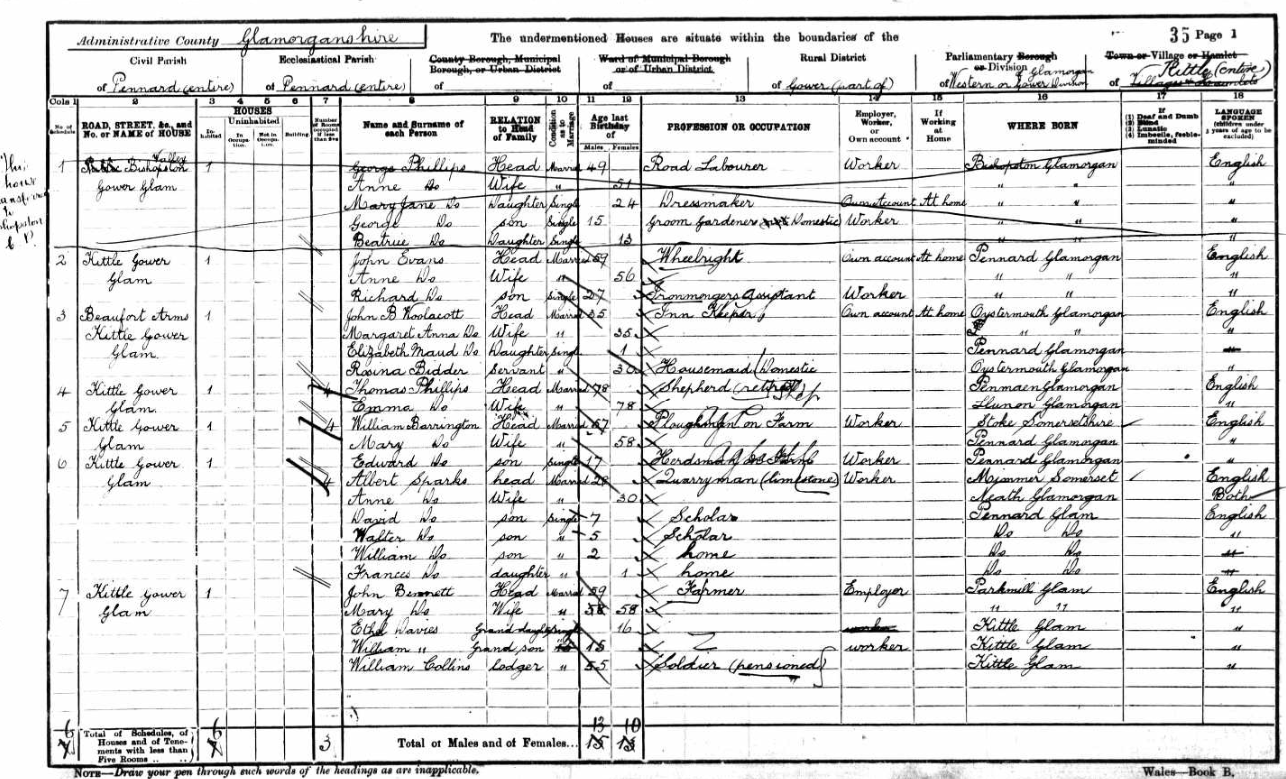 Administrative County Glamorganshire The undermentioned Houses are situate within the boundaries of the 35 Page 1
Civil Parish Ecclesiastical Parish County Borough, Municipal Borough, or Urban District Ward of Municipal Borough or of Urban District Rural District Parliamentary Borough or Division Town or Village or Hamlet
of Pennard (entire) of Pennard (entire) of of of Gower (part of) of Western or Gower Division Glamorgan of Kittle (entire)
Cols 1 2 3 4 5 6 7 8 9 10 11 12 13 14 15 16 17 18
No. of Schedule ROAD, STREET, &c., and No. or NAME of HOUSE HOUSES Inhabited Uninhabited In Occupation Not in Occupation Building Number of Rooms occupied if less than five Name and Surname of each Person RELATION to Head of Family Condition as to Marriage Age last Birthday of Males Females PROFESSION OR OCCUPATION Employer, Worker, or Own account If Working at Home WHERE BORN If (1) Deaf and Dumb (2) Blind (3) Lunatic (4) Imbecile, feeble-minded LANGUAGE SPOKEN (children under 3 years of age to be excluded)
This house transferred to Bishopston C P
1 Bishopston Valley 1 George Phillips Head Married 49 Road Labourer Worker Bishopston Glamorgan English
Gower Glam Anne Do Wife " 51 " " "
Mary Jane Do Daughter Single 24 Dressmaker Own account At home " " "
George Do son Single 15 Groom Gardener Domestic) Worker " " "
Beatrice Do Daughter Single 13 " " "
2 Kittle Gower 1 John Evans Head Married 59 Wheelright Own account At home Pennard Glamorgan English
Glam Anne Do Wife " 56 " " "
Richard Do son Single 27 Ironmongers Assistant Worker " " "
3 Beaufort Arms 1 John B Woolacott Head Married 35 Inn Keeper Own account At home Oystermouth Glamorgan English
Kittle Gower Margaret Anna Do Wife " 35 " " "
Glam. Elizabeth Maud Do Daughter Single 1 Pennard Glamorgan
Rosina Bidder servant " 30 Housemaid (Domestic Oystermouth Glamorgan "
4 Kittle Gower 1 4 Thomas Phillips Head Married 78 Shepherd (retired) Shep Penmaen Glamorgan English
Glam. Emma Do Wife " 78 Llunon Glamorgan "
5 Kittle Gower 1 4 William Barrington Head Married 57 Ploughman on Farm Worker Stoke Somersetshire English
Glam Mary Do Wife " 58 Pennard Glamorgan "
6 Kittle Gower 1 Edward Do son Single 17 Herdsman on Farm Worker Pennard Glamorgan "
Glam 4 Albert Sparks head Married 28 Quarryman (limestone) Worker Somerset English
Anne Do Wife " 30 Neath Glamorgan Both
David Do son Single 7 Scholar Pennard Glam English
Walter Do son " 5 Scholar Do Do "
William Do son " 2 home Do Do "
Frances Do daughter " 1 home Do Do "
7 Kittle Gower 1 John Bennett Head Married 59 Farmer Employer Parkmill Glam English
Glam Mary Do Wife " 58 58 " " "
Ethel Davies Grand daughter Single 16 worker Kittle Glam "
William " Grand son 15 worker Kittle Glam "
William Collins lodger " 55 Soldier (pensioned) Kittle Glam "
6 6 13 10
7 Total of Schedules, of Houses and of Tenements with less than Five Rooms .. .. 7 3 Total of Males and of Females... 15 13
NOTE—Draw your pen through such words of the headings as are inapplicable. Wales—Book B.